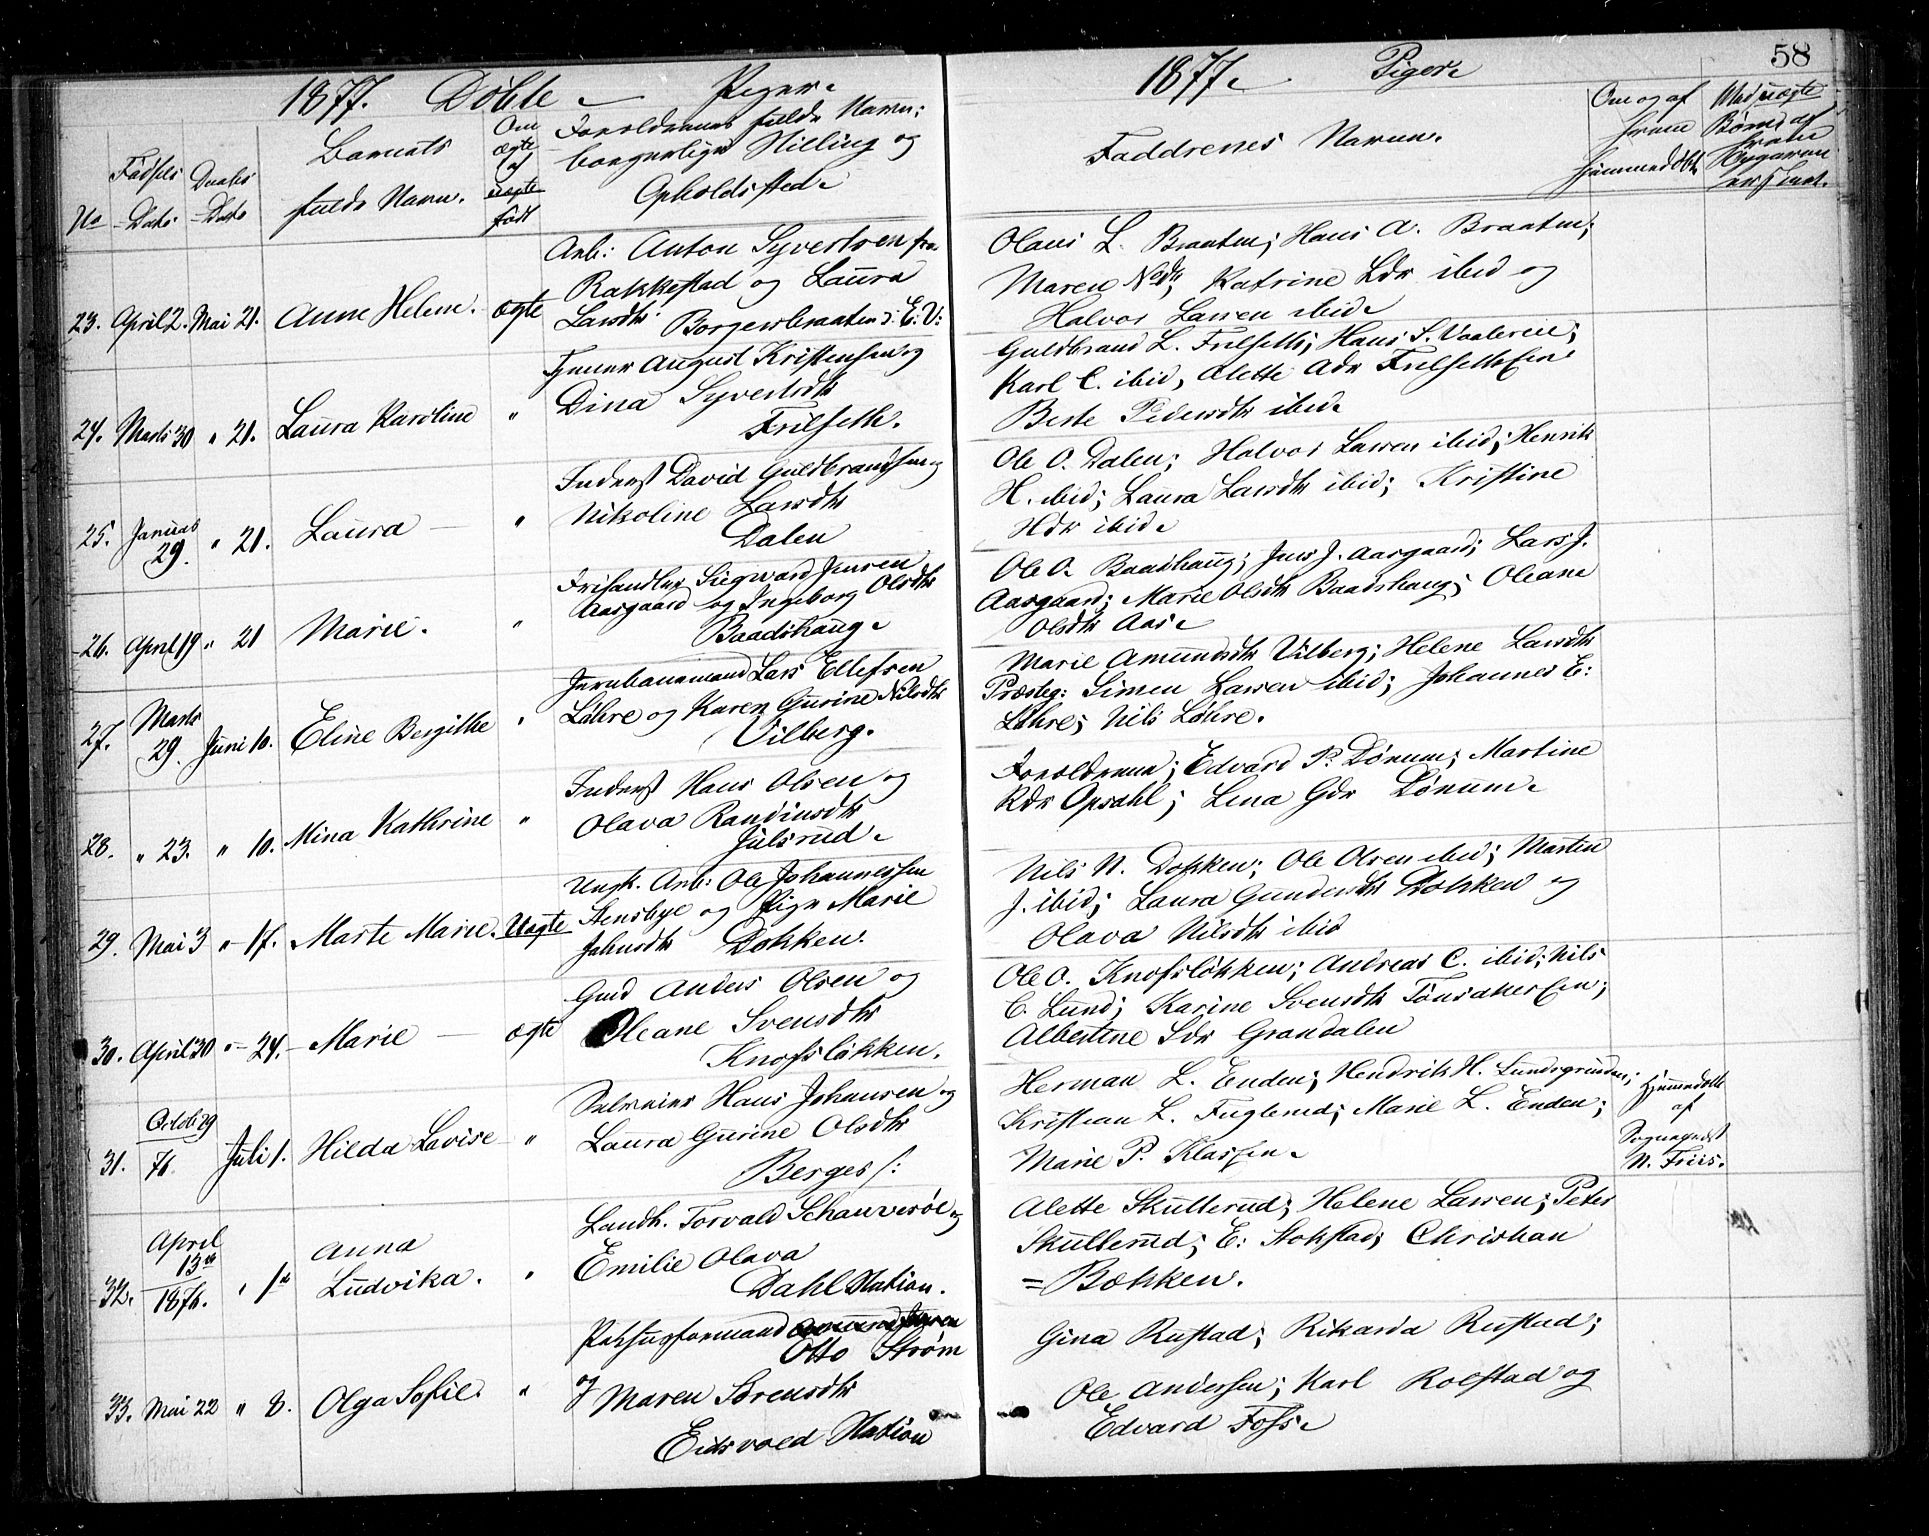 58
1877. Döbte Piger.
1877. Piger.
No
Födsels
Dato
Daabs
Dato
Barnets
fulde Navn.
Om
ægte
el
uægte
födt
Forældrenes fulde Navn;
borgerlige Stilling og
Opholdsted.
Faddrenes Navn.
Om og af
hvem
hjemmedöbt
Med uægte
Börn af
hvem
23. April 2. Mai 21. Anne Helene. ægte
Arb: Anton Syvertsen fra
Rakkestad og Laura
Larsdtr Borgersbraaten E: V:
Olaus L. Braaten; Hans A. Braaten;
Maren Nsdtr, Katrine Ldr ibid og
Halvor Larsen ibid.
24. Marts 30 " 21. Laura Karoline "
August Kristensen og
Dina Syvertsdtr
Frilseth.
Guldbrand L. Frilseth; Hans S. Vaalerei;
Karl C. ibid, Alette Adr Frilseth Ein
Berte Pedersdtr ibid.
25. Januar
29. " 21. Laura "
Inderst David Guldbrandsen og
Nikoline Larsdtr
Dalen
Ole O. Dalen; Halvor Larsen ibid; Henrik
H. ibid; Laura Larsdtr ibid; Kristine
Hdr ibid.
26. April 19 " 21 Marie. "
Frihandler Siegward Jensen
Aasgaard og Ingeborg Olsdtr
Baadshaug.
Ole O. Baadshaug; Jens J. Aasgaard; Lars J.
Aasgaard; Marie Olsdtr Baadshaug; Oleane
Olsdtr Aas.
27. Marts
29. Juni 10. Eline Bergithe "
Jernbanemand Lars Ellefsen
Løhre og Karen Gurine Nilsdtr
Vilberg.
Marie Amundsdtr Vilberg; Helene Larsdtr
Præsteg: Simen Larsen ibid; Johannes E:
Løhre; Nils Løhre.
28. " 23. " 10. Mina Kathrine "
Inderst Hans Olsen og
Olava Randinsdtr
Julsrud.
Forældrene; Edvard P. Dönum; Martine
Rdr Opsahl; Lina Gdr Dönum.
29. Mai 3 " 17. Marte Marie. Uægte
Ungk. Arb: Ole Johannessen
Stensbye og Pige Marie
Jahnsdtr Dokken.
Nils N. Dokken; Ole Olsen ibid; Martin
J. ibid; Laura Gundersdtr Dokken og
Olava Nilsdtr ibid
30. April 30 " 24. Marie ægte
Gmd Anders Olsen og
Oleane Svensdtr
Knofslökken.
Ole O. Knofslökken; Andreas C. ibid; Nils
C. Lund; Karine Svensdtr Tönsaker Ein;
Albertine Sdr Grandalen
31. Octob. 29
76. Juli 1. Hilda Lovise "
Hans Johansen og
Laura Gurine Olsdtr
Berges/:
Herman L. Enden; Hendrik H. Lundsgrinden;
Kristian L. Fuglerud; Marie L. Enden;
Marie P. Klasien.
Hjemmedöbt
af
Sognepræst
N. Friis.
32. April
13de
1876. " 1st Anna
Ludvika. "
Landh. Torvald Schauverøe og
Emilie Olava
Dahl Station.
Alette Skullerud; Helene Larsen; Peter
Skullerud; E: Stokstad; Christian
= Bækken.
33. Mai 22 " 8. Olga Sofie. "
Otto Strøm
og Maren Sörensdtr
Eidsvold Station
Gina Rustad; Rikarda Rustad;
Ole Andersen; Karl Rolstad og
Edvard Foss.